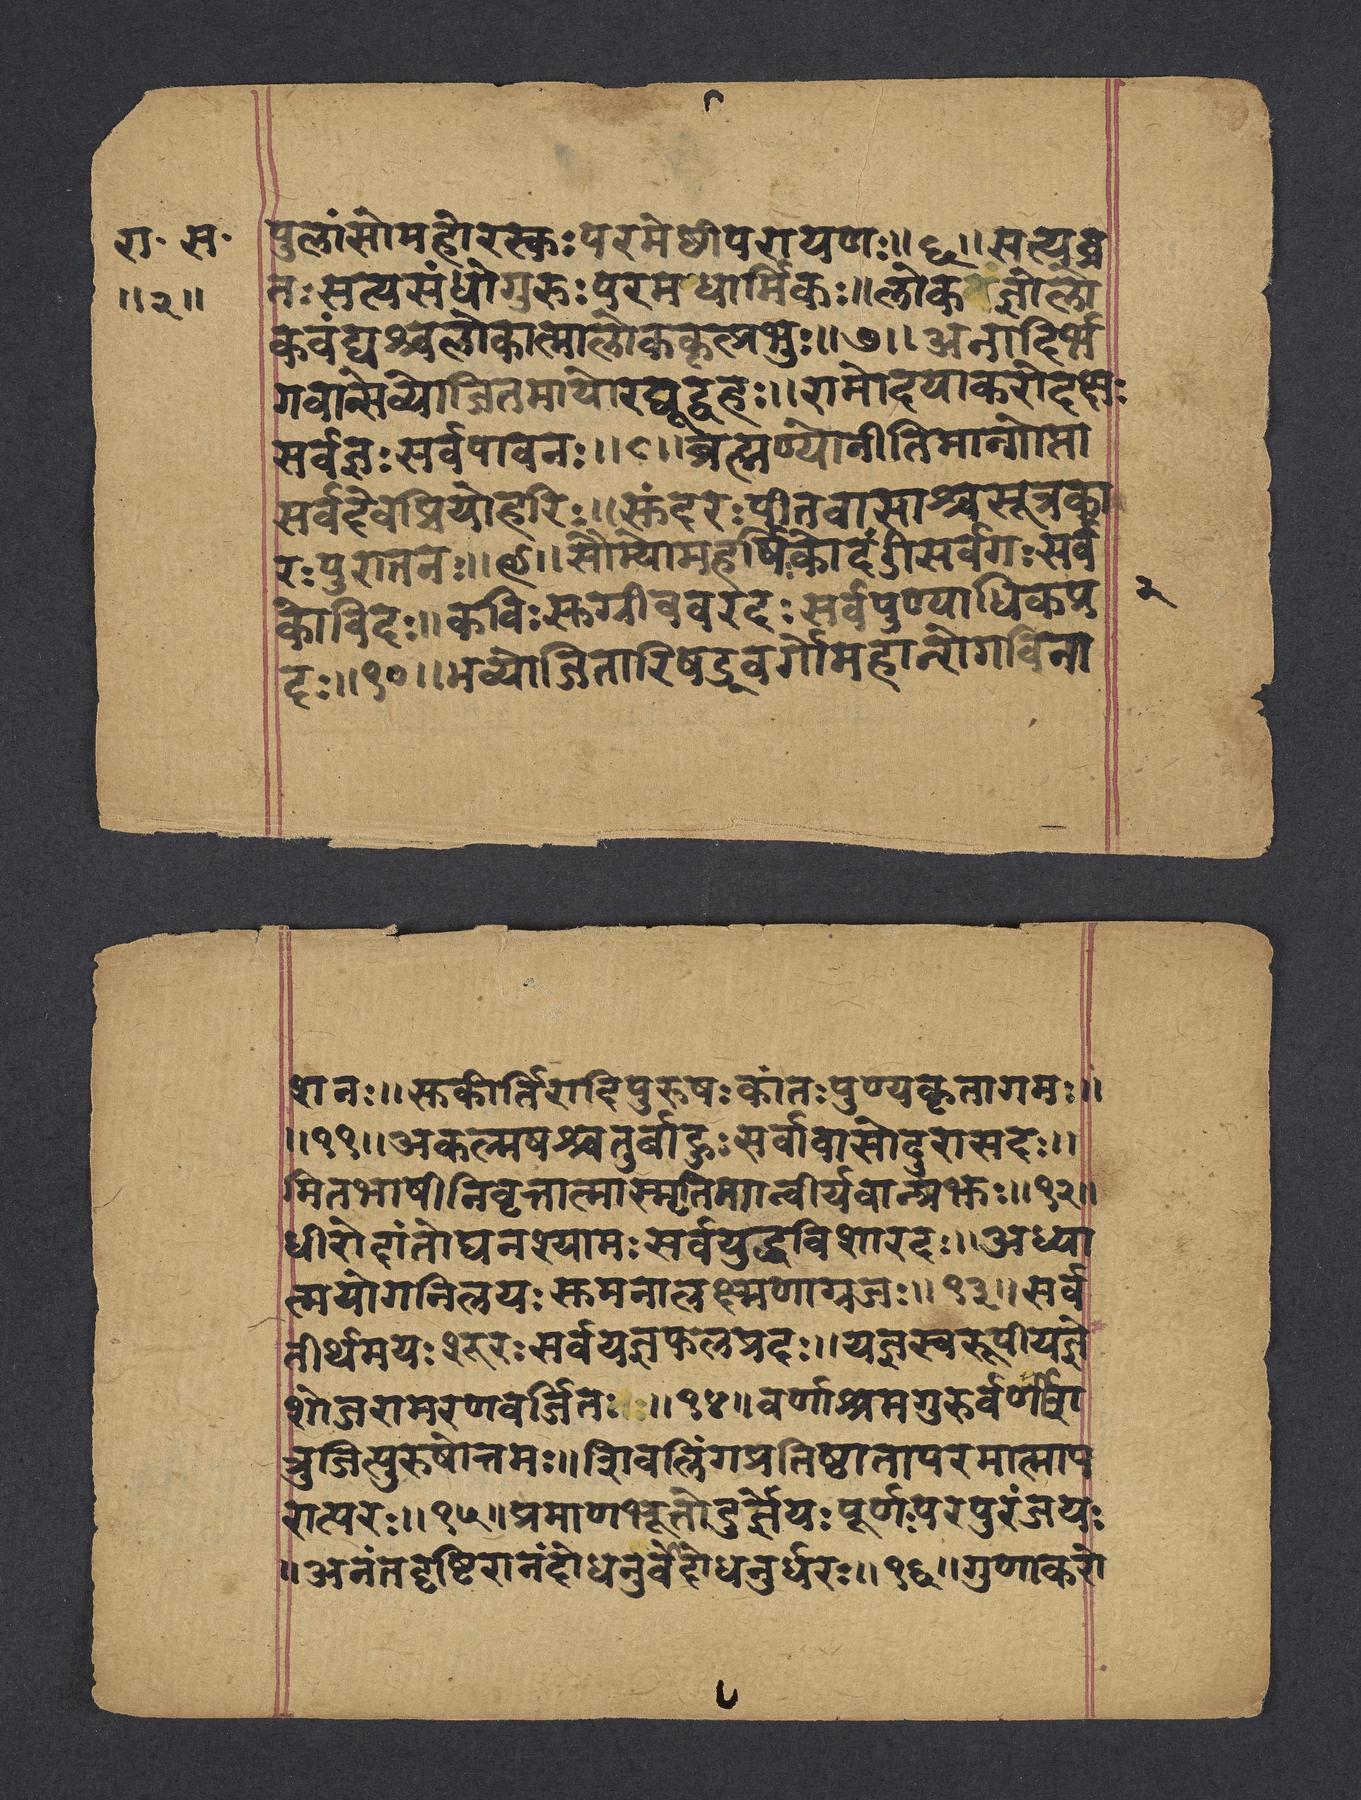 रा॰ स॰
॥२॥
पुलांसोमहोरस्कः परमेष्ठीपरायणः॥६॥सत्यव्र
तः सत्यसंधोगुरुः परमधार्मिकः॥लोकज्ञोलो
कवंद्यश्चलोकात्मालोककृत्प्रभुः॥७॥अनादिर्भ
गवान्सेव्योजितमायोरघूद्वहः॥रामोदयाकरोदक्षः
सर्वज्ञः सर्वपावनः॥८॥ब्रह्मण्योनीतिमान्गोप्ता
सर्वदेवप्रियोहरिः॥सुंदरः पीतवासाश्चसूत्रका
रः पुरातनः॥९॥सौम्योमहर्षिः कोदंडीसर्वगः सर्व
कोविदः॥कविः सुग्रीववरदः सर्वपुण्याधिकप्र
दः॥१०॥भव्योजितारिषड्वर्गोमहान्रोगविना
२
शनः॥सुकीर्तिरादिपुरुषः कांतः पुण्यकृतागमः॥
॥११॥अकल्मषश्चतुर्बाहुः सर्वावासोदुरासदः॥
मितभाषीनिवृत्तात्मास्मृतिमान्वीर्यवान्प्रभुः॥१२॥
धीरोदांतोघनश्यामः सर्वयुद्धविशारदः॥अध्या
त्मयोगनिलयः सुमनालक्ष्मणाग्रजः॥१३॥सर्व
तीर्थमयः शूरः सर्वयज्ञफलप्रदः॥यज्ञस्वरूपीयज्ञे
शोजरामरणवर्जितः॥१४॥वर्णाश्रमगुरुर्वर्णी
त्रुजित्पुरुषोत्तमः॥शिवलिंगप्रतिष्ठातापरमात्माप
रात्परः॥१५॥प्रमाणभूतोदुर्ज्ञेयः पूर्णः परपुरंजयः
॥अनंतदृष्टिरानंदोधनुर्वेदोधनुर्धरः॥१६॥गुणाकरो